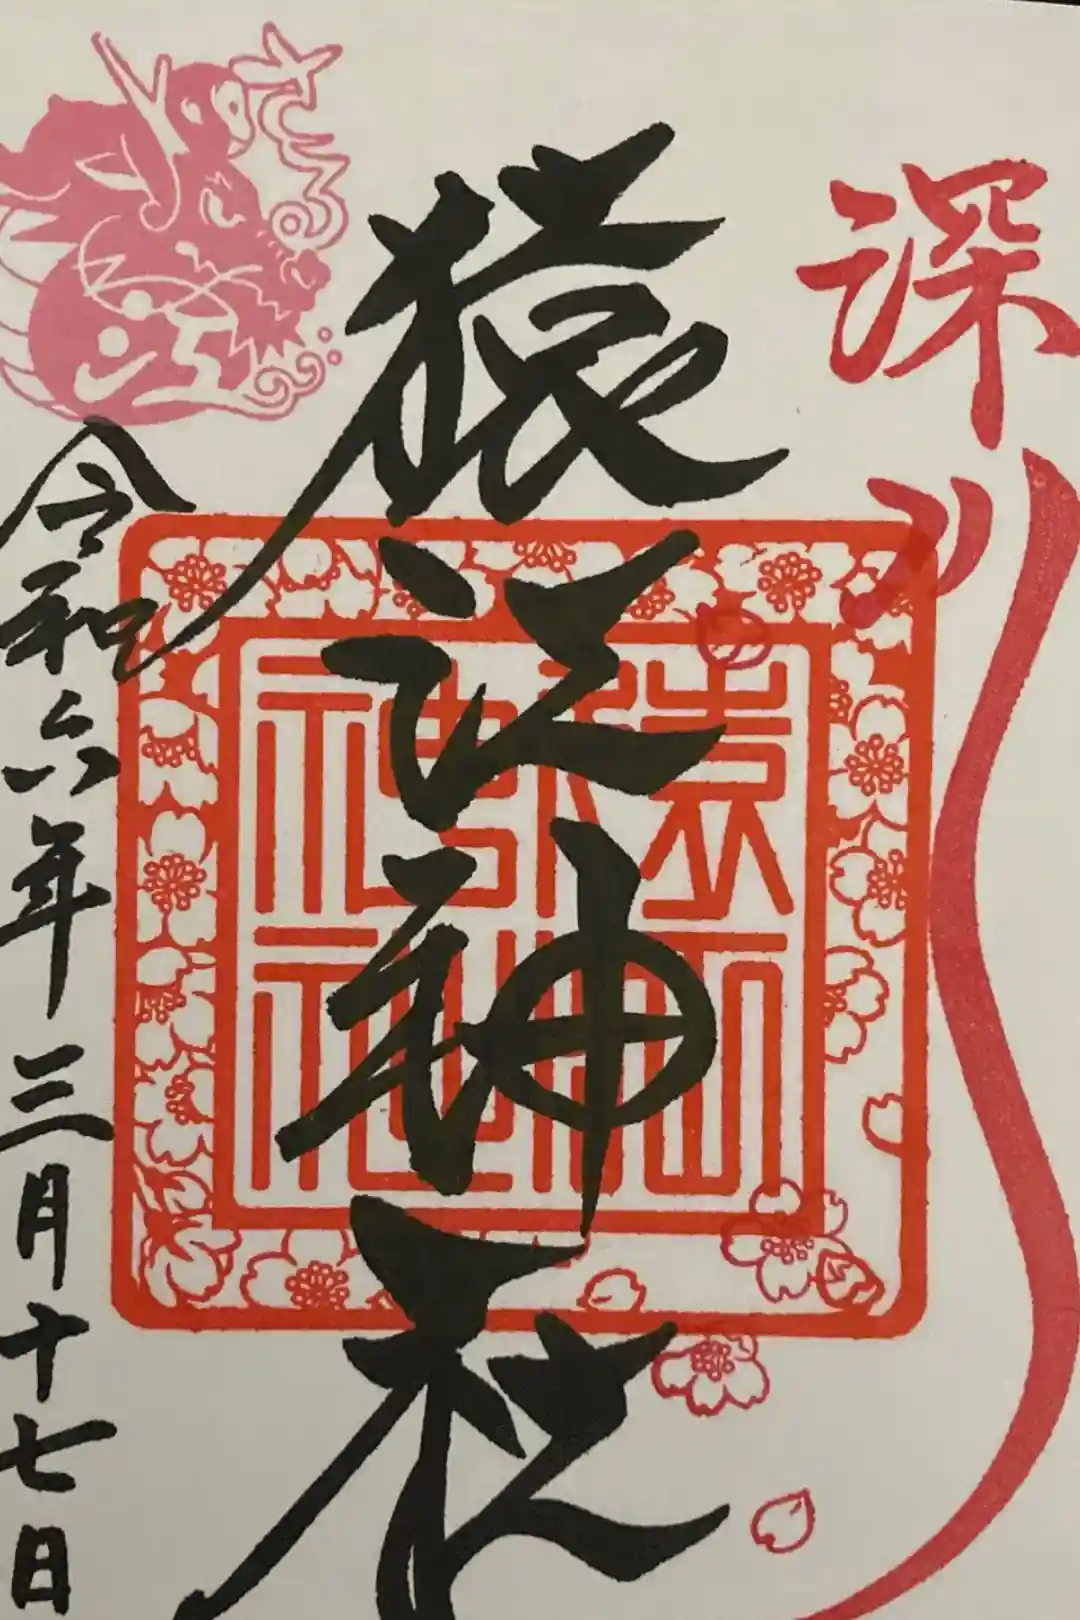 深川
猿江神社
猿江
神社
令和六年三月十七日